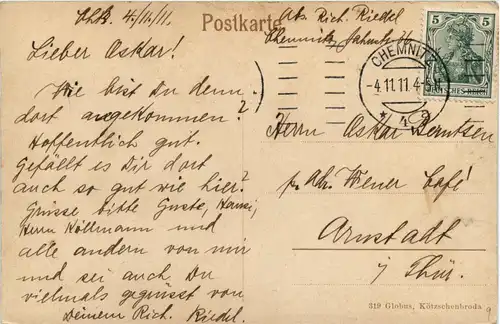 Chtz. 4./11./11.
Postkarte
Abs. Rich. Riedel
Chemnitz,
Lieber Oskar!
Wie bist Du denn
dort angekommen?
Hoffentlich gut.
Gefällt es Dir dort
auch so gut wie hier?
Grüsse bitte Guste, Hansi,
Herrn Köllmann und
alle andern von mir
und sei auch Du
vielmals gegrüsst von
Deinem Rich. Riedel.
5 5
DEUTSCHES REICH
CHEMNITZ
-4.11.11.4-
* 4
Herrn Oskar Berntsen
p. Adr. Wener Café
Arnstadt
i/ Thür.
319 Globus, Kötzschenbroda